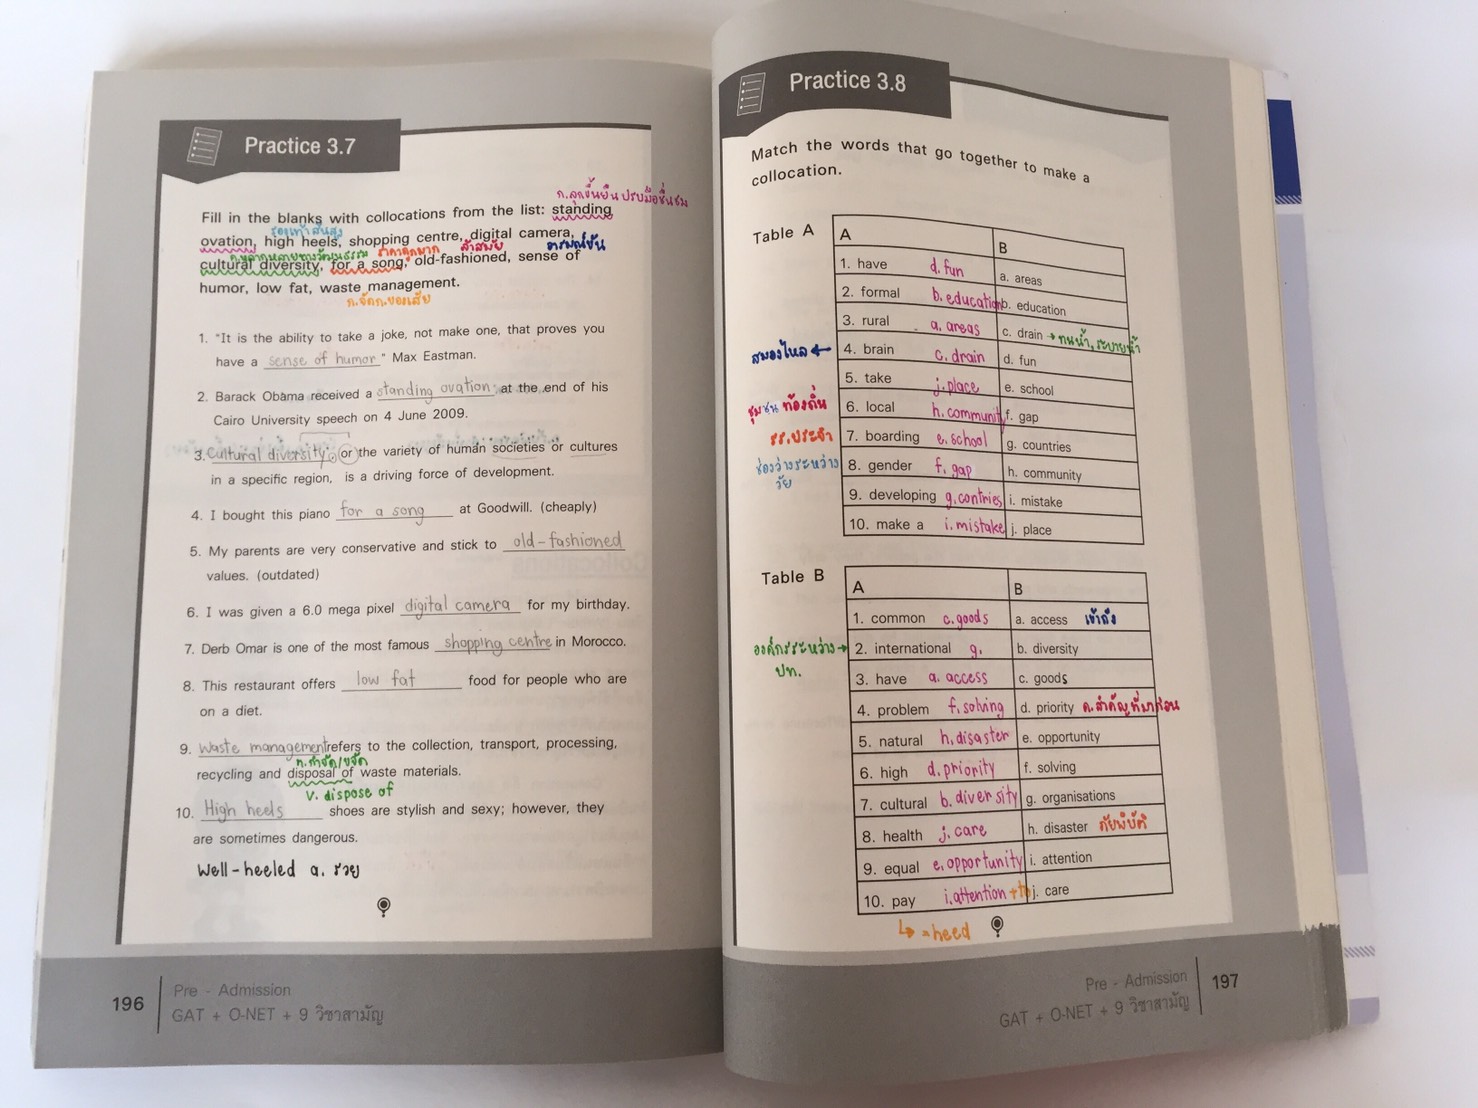 Practice 3.7
ก.ลุกขึ้นยืนปรบมือชื่นชม
Fill in the blanks with collocations from the list: standing
รองเท้าส้นสูง
ovation, high heels, shopping centre, digital camera,
ค.หลากหลายทางวัฒนธรรม ราคาถูกมาก ล้าสมัย อารมณ์ขัน
cultural diversity, for a song, old-fashioned, sense of
humor, low fat, waste management.
ก.จัดก.ของเสีย
1. "It is the ability to take a joke, not make one, that proves you
have a sense of humor " Max Eastman.
2. Barack Obama received a standing ovation at the end of his
Cairo University speech on 4 June 2009.
3. cultural diversity, or the variety of human societies or cultures
in a specific region, is a driving force of development.
4. I bought this piano for a song at Goodwill. (cheaply)
5. My parents are very conservative and stick to old-fashioned
values. (outdated)
6. I was given a 6.0 mega pixel digital camera for my birthday.
7. Derb Omar is one of the most famous shopping centre in Morocco.
8. This restaurant offers low fat food for people who are
on a diet.
9. Waste management refers to the collection, transport, processing,
ก.กำจัด/ขจัด
recycling and disposal of waste materials.
v. dispose of
10. High heels shoes are stylish and sexy; however, they
are sometimes dangerous.
Well-heeled a. รวย
196
Pre - Admission
GAT + O-NET + 9 วิชาสามัญ
Practice 3.8
Match the words that go together to make a
collocation.
Table A
A B
1. have d. fun a. areas
2. formal b. education b. education
3. rural a. areas c. drain → ทนน้ำ, ระบายน้ำ
สมองไหล ← 4. brain c. drain d. fun
5. take j. place e. school
ชุมชนท้องถิ่น 6. local h. community f. gap
รร.ประจำ 7. boarding e. school g. countries
ช่องว่างระหว่าง 8. gender f. gap h. community
วัย
9. developing g. contries i. mistake
10. make a i. mistake j. place
Table B
A B
1. common c. goods a. access เข้าถึง
องค์กรระหว่าง → 2. international g. b. diversity
ปท.
3. have a. access c. goods
4. problem f. solving d. priority ค.สำคัญที่มาก่อน
5. natural h. disaster e. opportunity
6. high d. priority f. solving
7. cultural b. diversity g. organisations
8. health j. care h. disaster ภัยพิบัติ
9. equal e. opportunity i. attention
10. pay i. attention + to j. care
↳ = heed
Pre - Admission
GAT + O-NET + 9 วิชาสามัญ
197